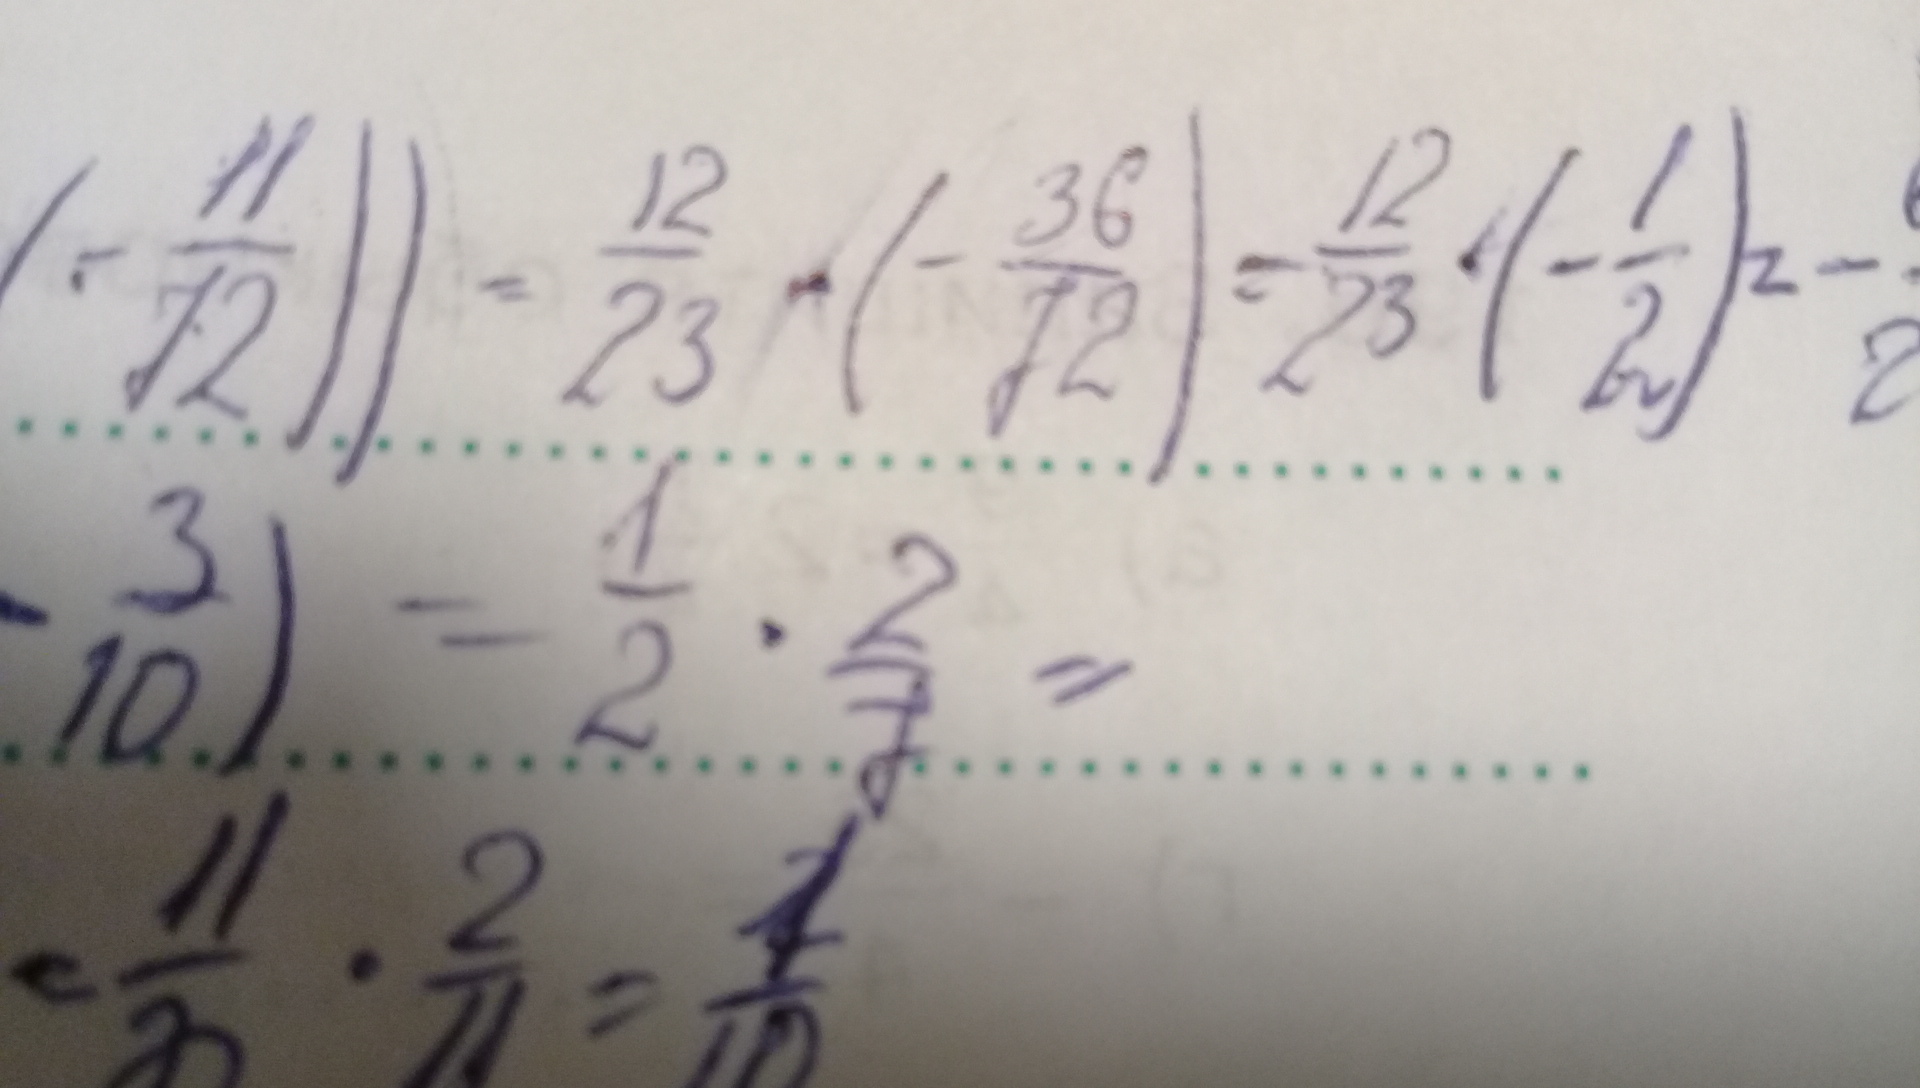 (-11/72)) = 12/23 · (-36/72) = 12/23 · (-1/2) = -
- 3/10) = 1/2 · 2/7 =
= 11/20 · 2/11 = 1/10